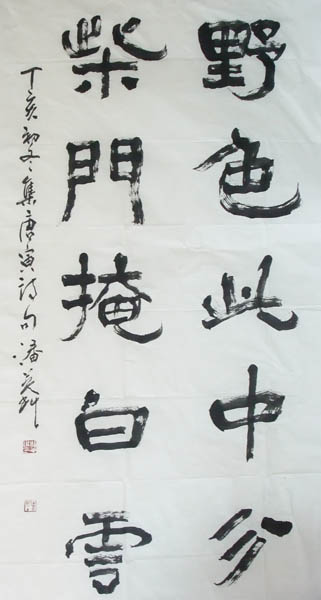 野色此中分
柴門掩白雲
丁亥初冬集唐寅詩句潘英